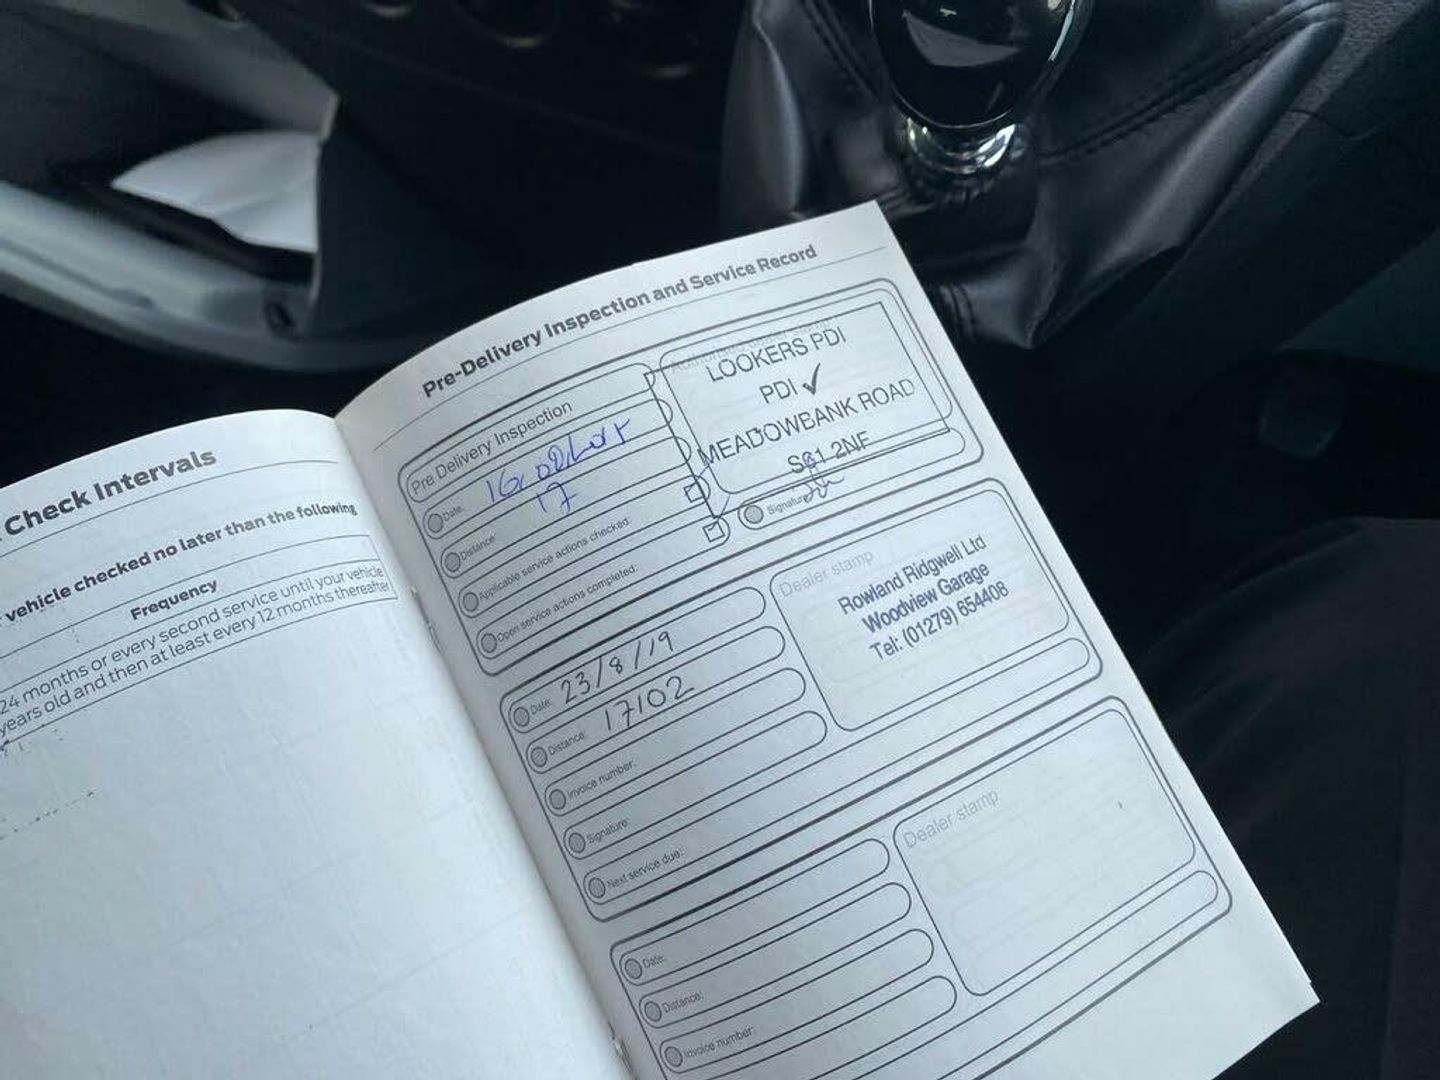 Check Intervals
vehicle checked no later than the following
Frequency
24 months or every second service until your vehicle
years old and then at least every 12 months thereafter
Pre-Delivery Inspection and Service Record
Pre Delivery Inspection
Date:
Distance: 17
Applicable service actions checked:
Open service actions completed:
LOOKERS PDI
PDI ✓
MEADOWBANK ROAD
S61 2NF
Signature:
Date: 23/8/19
Distance: 17102
Invoice number:
Signature:
Next service due:
Dealer stamp
Rowland Ridgwell Ltd
Woodview Garage
Tel: (01279) 654408
Date:
Distance:
Invoice number:
Dealer stamp